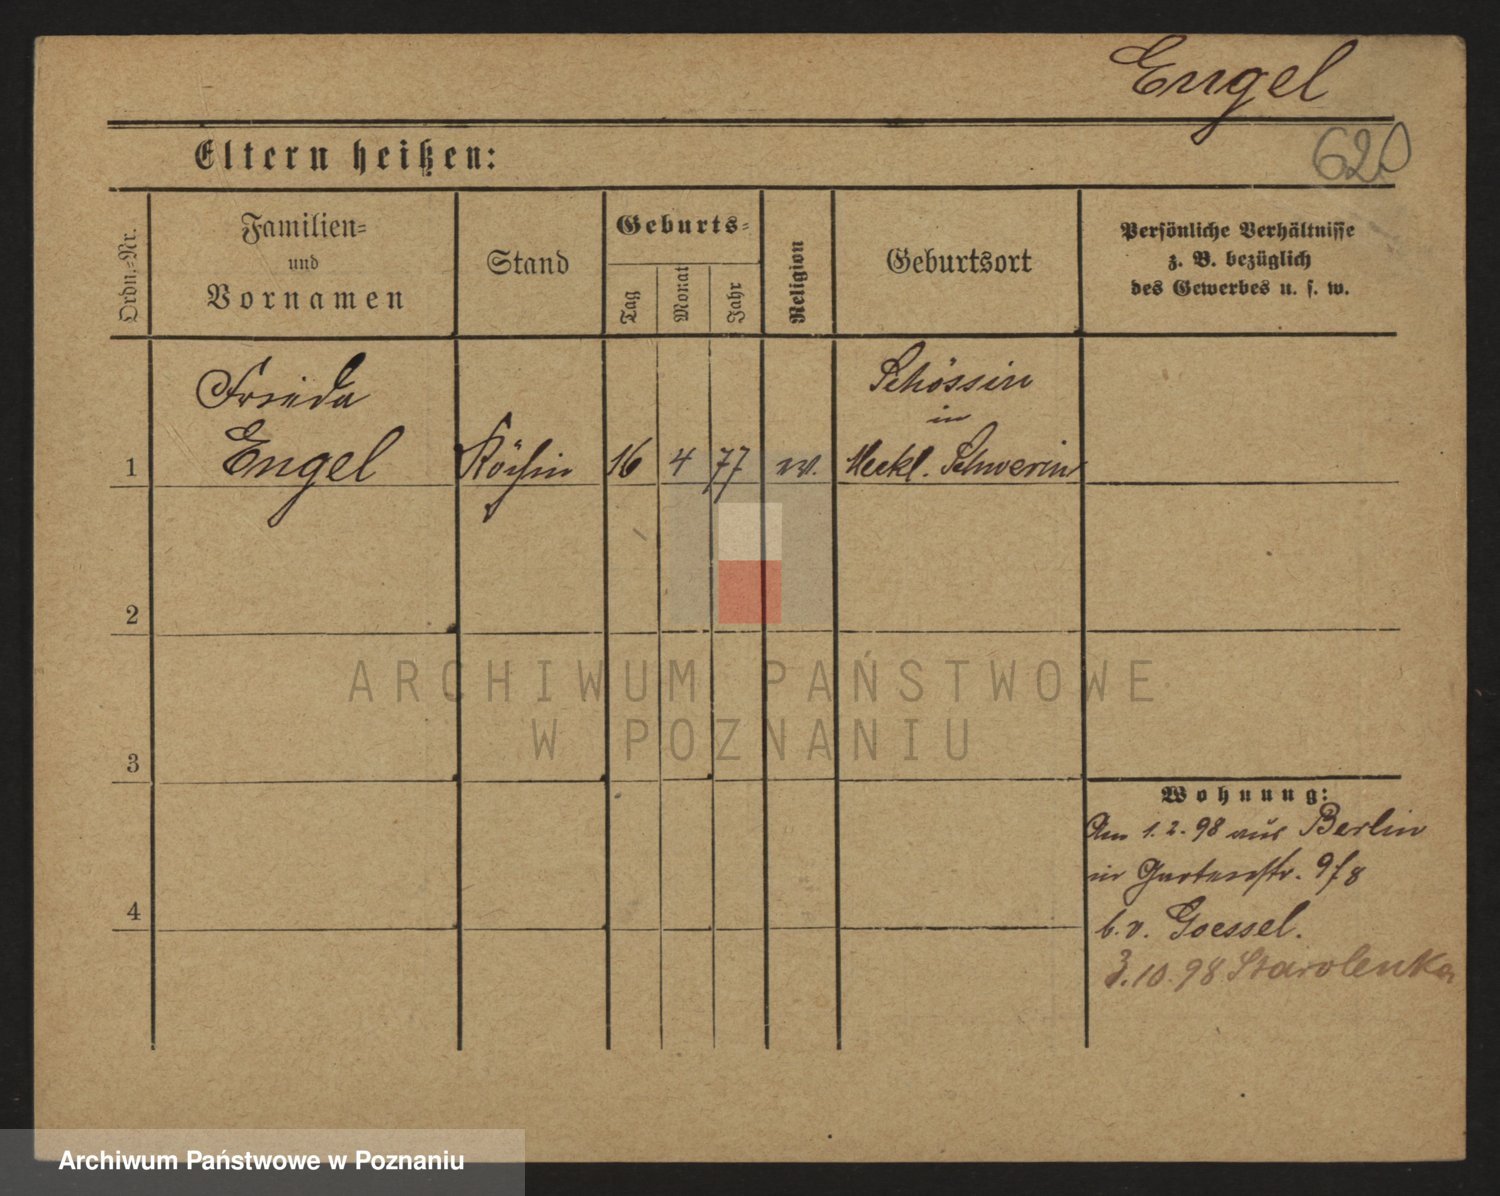 Engel
620
Eltern heißen:
Ordn.-Nr.
Familien-
und
Vornamen
Stand
Geburts-
Tag
Monat
Jahr
Religion
Geburtsort
Persönliche Verhältnisse
z. B. bezüglich
des Gewerbes u. s. w.
Frieda
Engel
Schössin
in
1 Köchin 16 4 77 ev. Meckl. Schwerin
2
ARCHIWUM PAŃSTWOWE
W POZNANIU
3
Wohnung:
Am 1.2.98 aus Berlin
in Gartenstr. 9/8
b. v. Goessel.
4
3.10.98 Starolenka
Archiwum Państwowe w Poznaniu